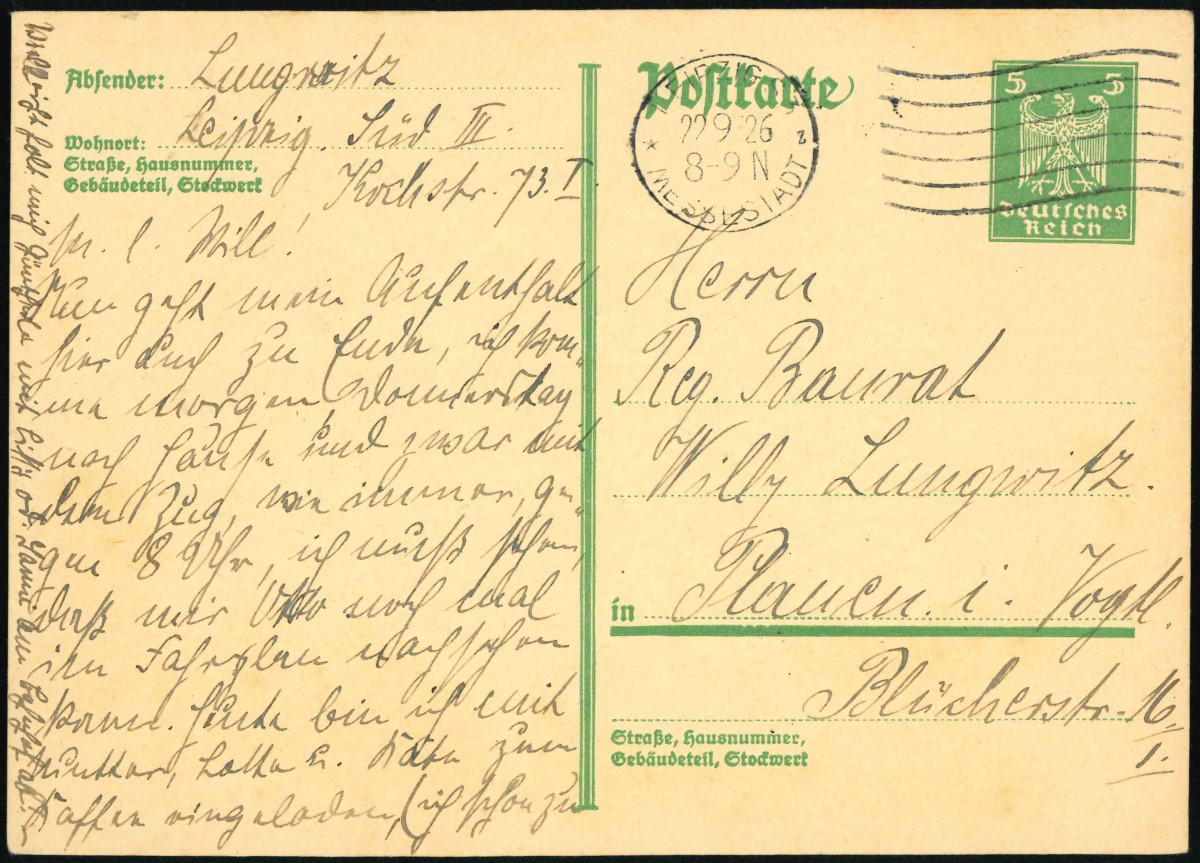 Absender: Lungwitz
Wohnort: Leipzig. Süd III.
Straße, Hausnummer,
Gebäudeteil, Stockwerk
Kochstr. 73. I.
M. l. Will!
Nun geht mein Aufenthalt
hier auch zu Ende, ich kom-
me morgen, Donnerstag
nach Hause und zwar mit
dem Zug, wie immer, ge-
gen 8 Uhr, ich muß sehen,
daß mir Otto noch mal
im Fahrplan nachsehen
kann. Heute bin ich mit
Mutter, Lotte u. Käte zum
Kaffee eingeladen, (ich schon zu
Vielleicht holt mich mit od. am Bahnhof ab.
Postkarte
LEIPZIG
22.9.26
8-9 N
MESSESTADT
5 5
Deutsches
Reich
Herrn
Reg. Baurat
Willy Lungwitz.
in Plauen. i. Vogtl.
Blücherstr. 16
I.
Straße, Hausnummer,
Gebäudeteil, Stockwerk